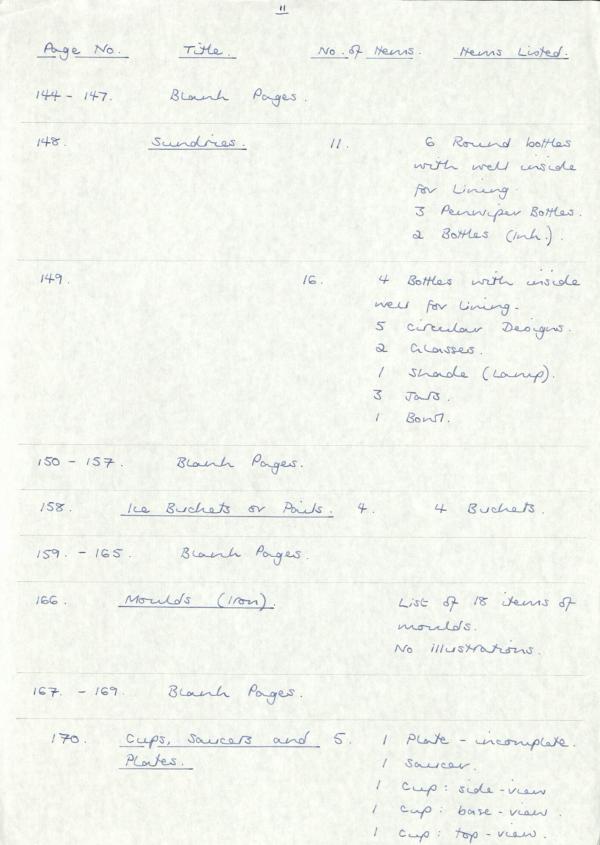 11
Page No. Title. No. of Items. Items Listed.
144 - 147. Blank Pages.
148. Sundries. 11. 6 Round bottles
with well inside
for Lining.
3 Penwiper Bottles.
2 Bottles (ink.).
149. 16. 4 Bottles with inside
well for Lining.
5 Circular Designs.
2 Glasses.
1 Shade (Lamp).
3 Jars.
1 Bowl.
150 - 157. Blank Pages.
158. Ice Buckets or Pails. 4. 4 Buckets.
159. - 165. Blank Pages.
166. Moulds (Iron). List of 18 items of
moulds.
No illustrations.
167. - 169. Blank Pages.
170. Cups, Saucers and 5. 1 Plate - incomplete.
Plates. 1 Saucer.
1 Cup: side-view
1 Cup: base-view.
1 Cup: top-view.